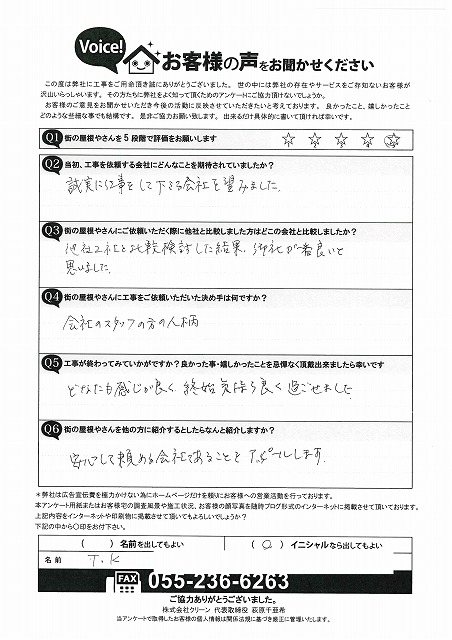 Voice!
お客様の声をお聞かせください
この度は弊社に工事をご用命頂き誠にありがとうございました。世の中には弊社の存在やサービスをご存知ないお客様が
沢山いらっしゃいます。その方たちに弊社をよく知って頂くためのアンケートにご協力頂けないでしょうか。
お客様のご意見をお聞かせいただき今後の活動に反映させていただきたいと考えております。良かったこと、嬉しかったこと
どのような些細な事でも結構です。是非ご協力お願い致します。出来るだけ具体的に書いて頂ければ幸いです。
Q1 街の屋根やさんを5段階で評価をお願いします ☆ ☆ ☆ ☆ ☆
Q2 当初、工事を依頼する会社にどんなことを期待されていましたか?
誠実に仕事をして下さる会社を望みました。
Q3 街の屋根やさんにご依頼いただく際に他社と比較しました方はどこの会社と比較しましたか?
他社2社と比較検討した結果、御社が一番良いと
思いました。
Q4 街の屋根やさんに工事をご依頼いただいた決め手は何ですか?
会社のスタッフの方の人柄
Q5 工事が終わってみていかがですか?良かった事・嬉しかったことを忌憚なく頂戴出来ましたら幸いです
どなたも感じが良く、終始気持ち良く過ごせました
Q6 街の屋根やさんを他の方に紹介するとしたらなんと紹介しますか?
安心して頼める会社であることをアピールします。
＊弊社は広告宣伝費を極力かけない為にホームページだけを頼りにお客様への営業活動を行っております。
本アンケート用紙またはお客様宅の調査風景や施工状況、お客様の顔写真を随時ブログ形式のインターネットに掲載させて頂いております。
上記内容をインターネットや印刷物に掲載させて頂いてもよろしいでしょうか?
下記の中から〇印をお付下さい。
( ) 名前を出してもよい ( ○ ) イニシャルなら出してもよい
名前 T.K
FAX 055-236-6263
ご協力ありがとうございました。
株式会社クリーン 代表取締役 萩原千亜希
当アンケートで取得したお客様の個人情報は関係法規に基づき厳正に管理いたします。